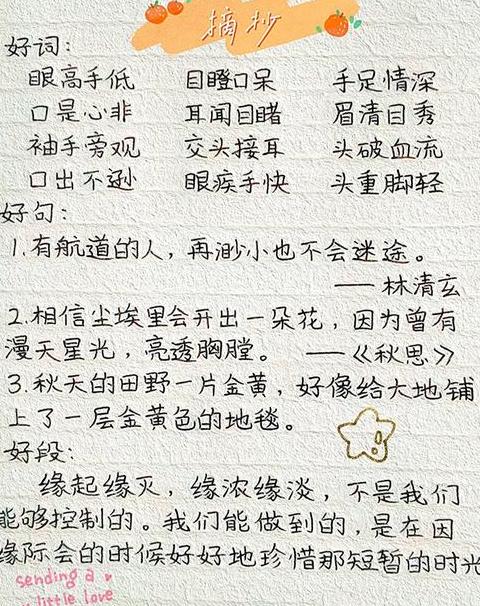 摘抄
好词：
眼高手低 目瞪口呆 手足情深
口是心非 耳闻目睹 眉清目秀
袖手旁观 交头接耳 头破血流
口出不逊 眼疾手快 头重脚轻
好句：
1.有航道的人，再渺小也不会迷途。
——林清玄
2.相信尘埃里会开出一朵花，因为曾有
漫天星光，亮透胸膛。 ——《秋思》
3.秋天的田野一片金黄，好像给大地铺
上了一层金黄色的地毯。
好段：
缘起缘灭，缘浓缘淡，不是我们
能够控制的。我们能做到的，是在因
缘际会的时候好好地珍惜那短暂的时光
sending a
little love